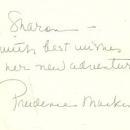 Sharon -
with best wishes
her new adventur
Prudence Mackin